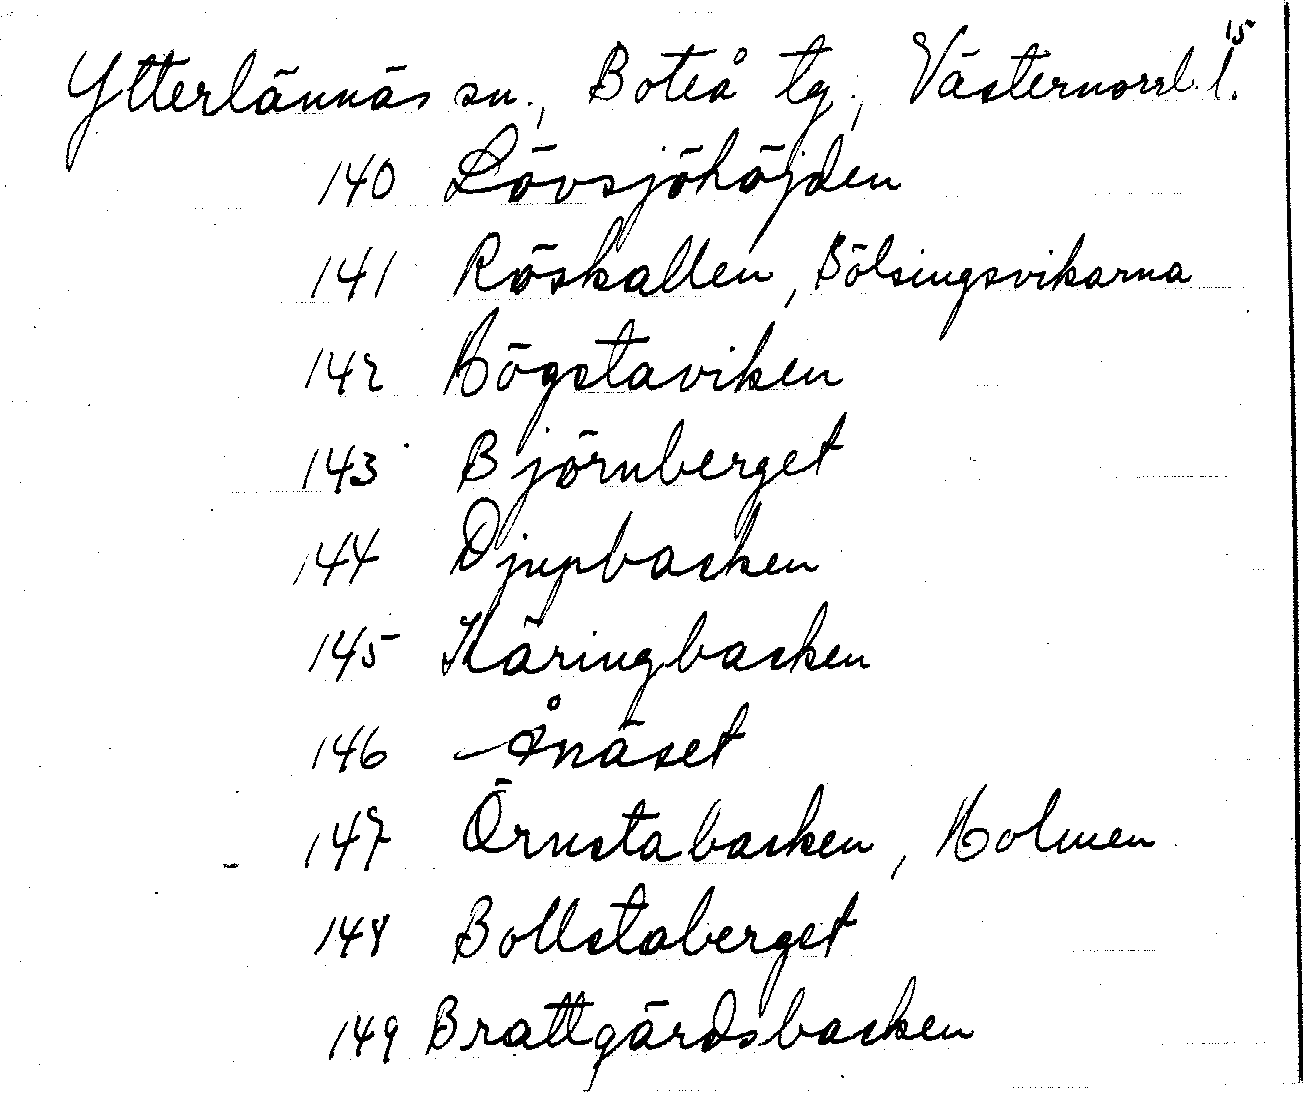 15
Ytterlännäs sn., Boteå tg., Västernorrl. l.
140 Lövsjöhöjden
141 Röskallen, Bölsingsvikarna
142 Högstaviken
143 Björnberget
144 Djupbacken
145 Käringbacken
146 Ånäset
147 Örnstabacken, Holmen
148 Bollstaberget
149 Brattgårdsbacken